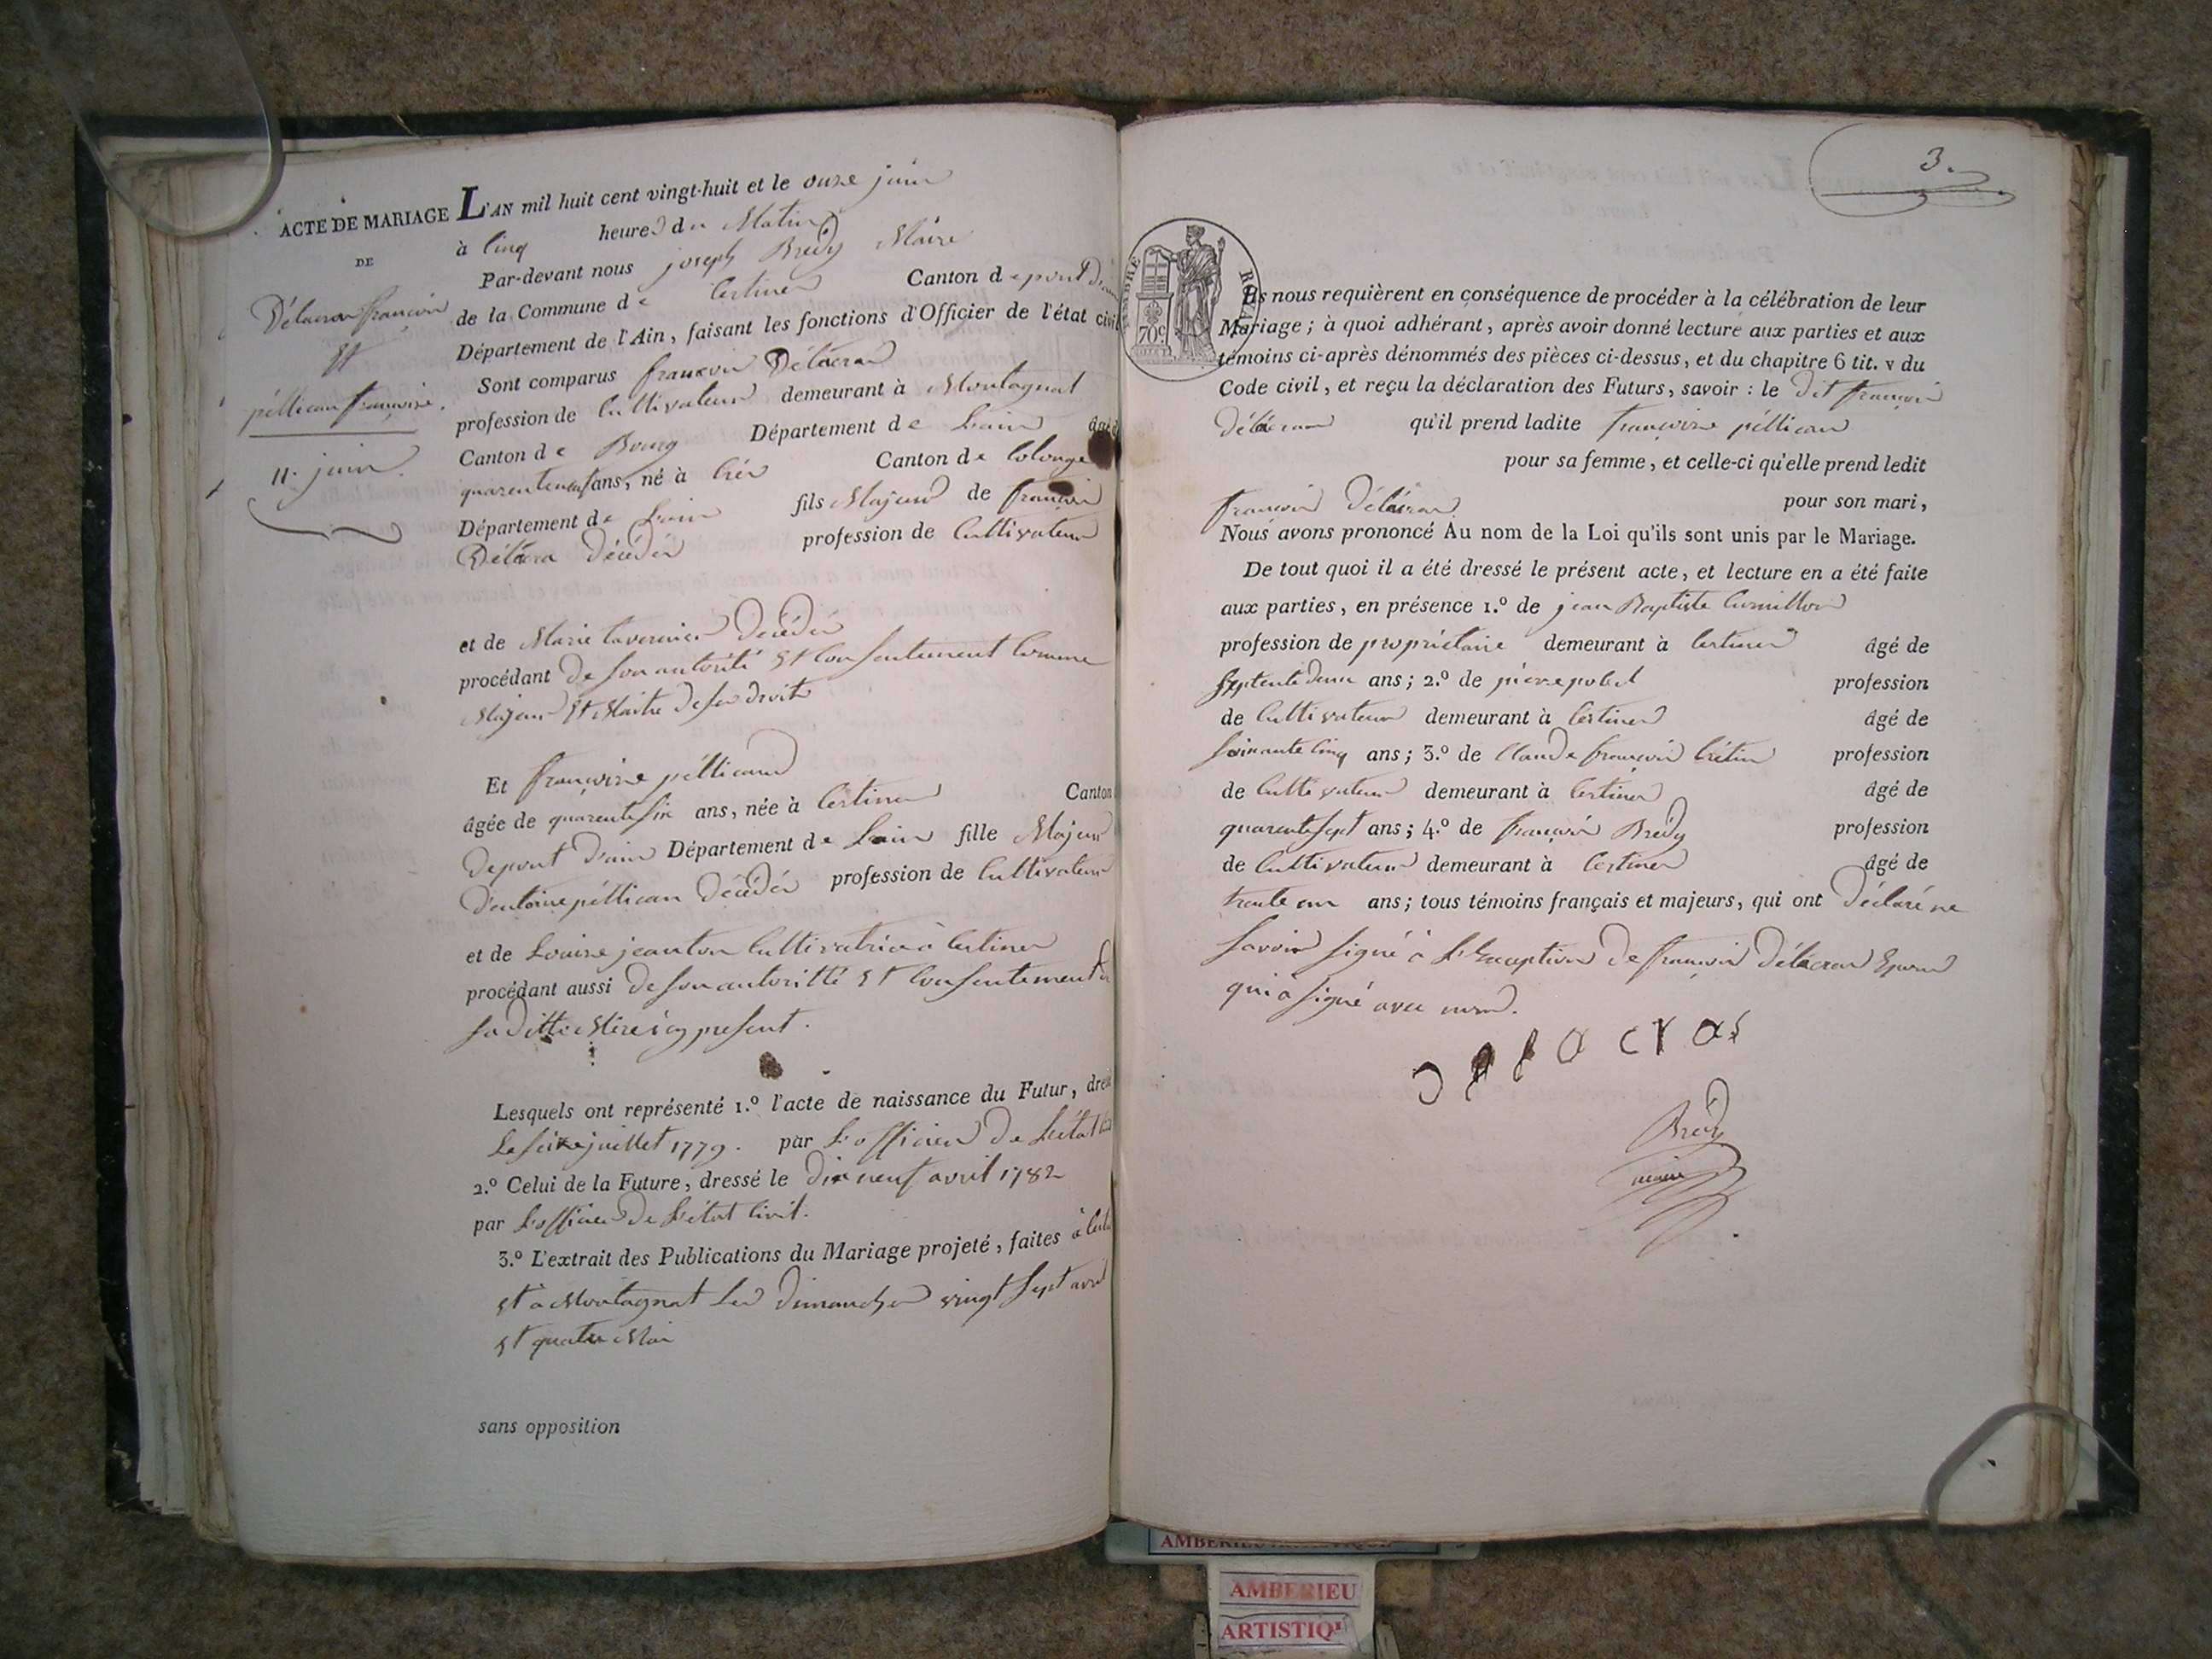 ACTE DE MARIAGE
DE
Délacra françois
Et
péllican françoise.
11. juin.
L'AN mil huit cent vingt-huit et le onze juin
à cinq heures du Matin
Par-devant nous joseph Bredy Maire
de la Commune de Certines Canton de pont d'ain
Département de l'Ain, faisant les fonctions d'Officier de l'état civil
Sont comparus françois Délacras
profession de Cultivateur demeurant à Montagnat
Canton de Bourg Département de Lain âgé d
quarenteneuf ans, né à Canton de Colonge
Département de Lain fils Majeur de françois
Délacra décédé profession de Cultivateur
et de Marie tavernier Décédée
procédant de son autorité Et Consentement Comme
Majeur Et Maitre de ses droits
Et françoise péllican
âgée de quarente six ans, née à Certines Canton
de pont d'ain Département de Lain fille Majeur
d'entoine péllican Décédé profession de Cultivateur
et de Louise jeanton Cultivatrice à Certines
procédant aussi de son autorité Et Consentement de
sa ditte Mère icy present.
Lesquels ont représenté 1.º l'acte de naissance du Futur, dressé
Le seize juillet 1779. par L'officier de L'état Civil
2.º Celui de la Future, dressé le dix neuf avril 1782
par L'officier De L'état Civil.
3.º L'extrait des Publications du Mariage projeté, faites à
Et à Montagnat Les dimanches vingt sept avril
Et quatre Mai
sans opposition
3.
TIMBRE ROYAL
70c
Ils nous requièrent en conséquence de procéder à la célébration de leur
Mariage; à quoi adhérant, après avoir donné lecture aux parties et aux
témoins ci-après dénommés des pièces ci-dessus, et du chapitre 6 tit. v du
Code civil, et reçu la déclaration des Futurs, savoir : le dit françois
délacras qu'il prend ladite françoise péllican
pour sa femme, et celle-ci qu'elle prend ledit
françois Délacras pour son mari,
Nous avons prononcé Au nom de la Loi qu'ils sont unis par le Mariage.
De tout quoi il a été dressé le présent acte, et lecture en a été faite
aux parties, en présence 1.º de jean Baptiste Curnillon
profession de propriétaire demeurant à Certines âgé de
septente deux ans; 2.º de pierre pobel profession
de Cultivateur demeurant à Certines âgé de
soixante cinq ans; 3.º de Claude françois Crétin profession
de Cultivateur demeurant à Certines âgé de
quarente sept ans; 4.º de françois Bredy profession
de Cultivateur demeurant à Certines âgé de
trente ans; tous témoins français et majeurs, qui ont Déclaré ne
savoir signé à L'Exception de françois Délacras Epoux
qui à signé avec nous.
Delacras
Bredy
maire
AMBERIEU ARTISTIQUE
AMBERIEU
ARTISTIQ